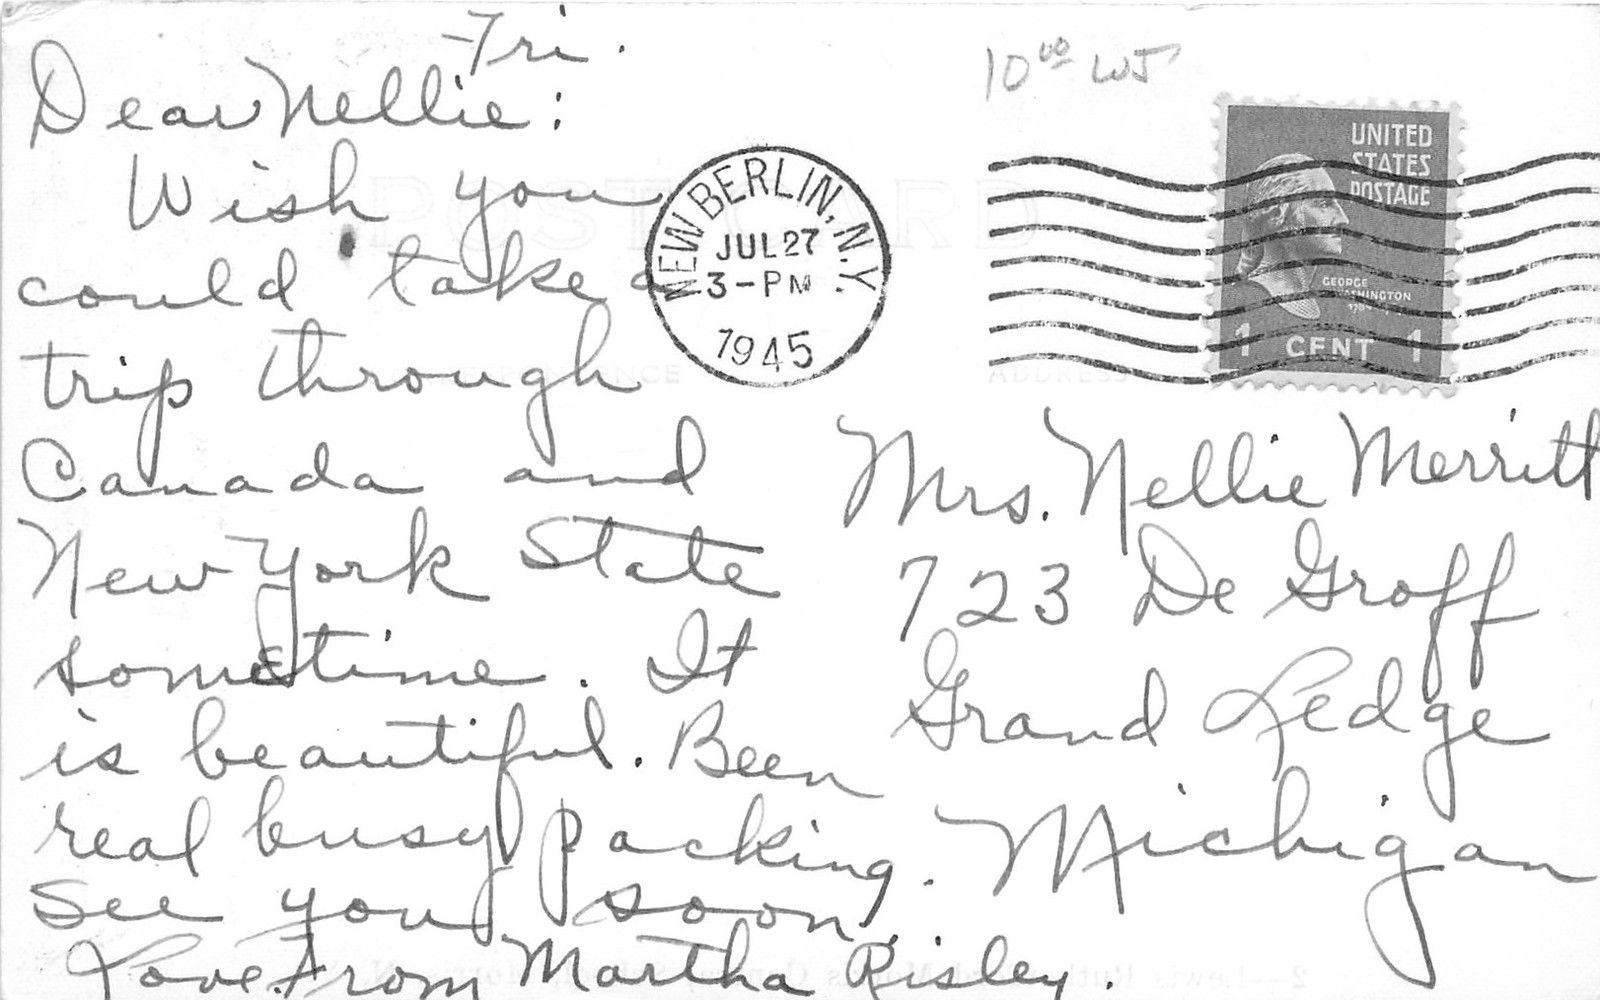 Fri.
Dear Nellie:
Wish you
could take a
trip through
Canada and
New York State
sometime. It
is beautiful. Been
real busy packing.
See you soon,
Love from Martha Risley.
POST CARD
CORRESPONDENCE
ADDRESS
NEW BERLIN, N.Y.
JUL 27
3-PM
1945
10⁰⁰
UNITED
STATES
POSTAGE
GEORGE
WASHINGTON
1 CENT 1
Mrs. Nellie Merritt
723 De Groff
Grand Ledge
Michigan